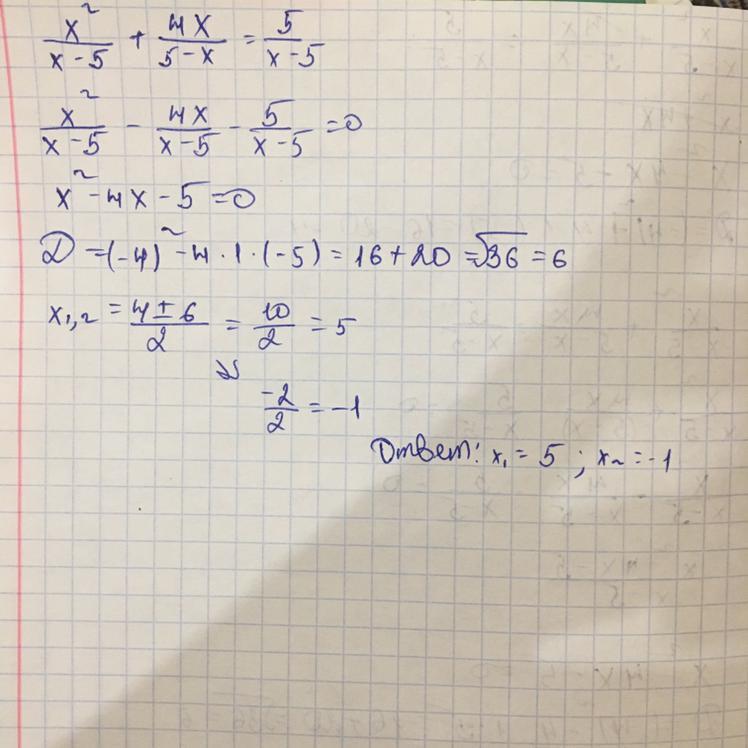 x²/(x-5) + 4x/(5-x) = 5/(x-5)
x²/(x-5) - 4x/(x-5) - 5/(x-5) = 0
x² - 4x - 5 = 0
D = (-4)² - 4·1·(-5) = 16 + 20 = √36 = 6
x₁,₂ = (4 ± 6)/2 = 10/2 = 5
⇘ -2/2 = -1
Ответ: x₁ = 5 ; x₂ = -1